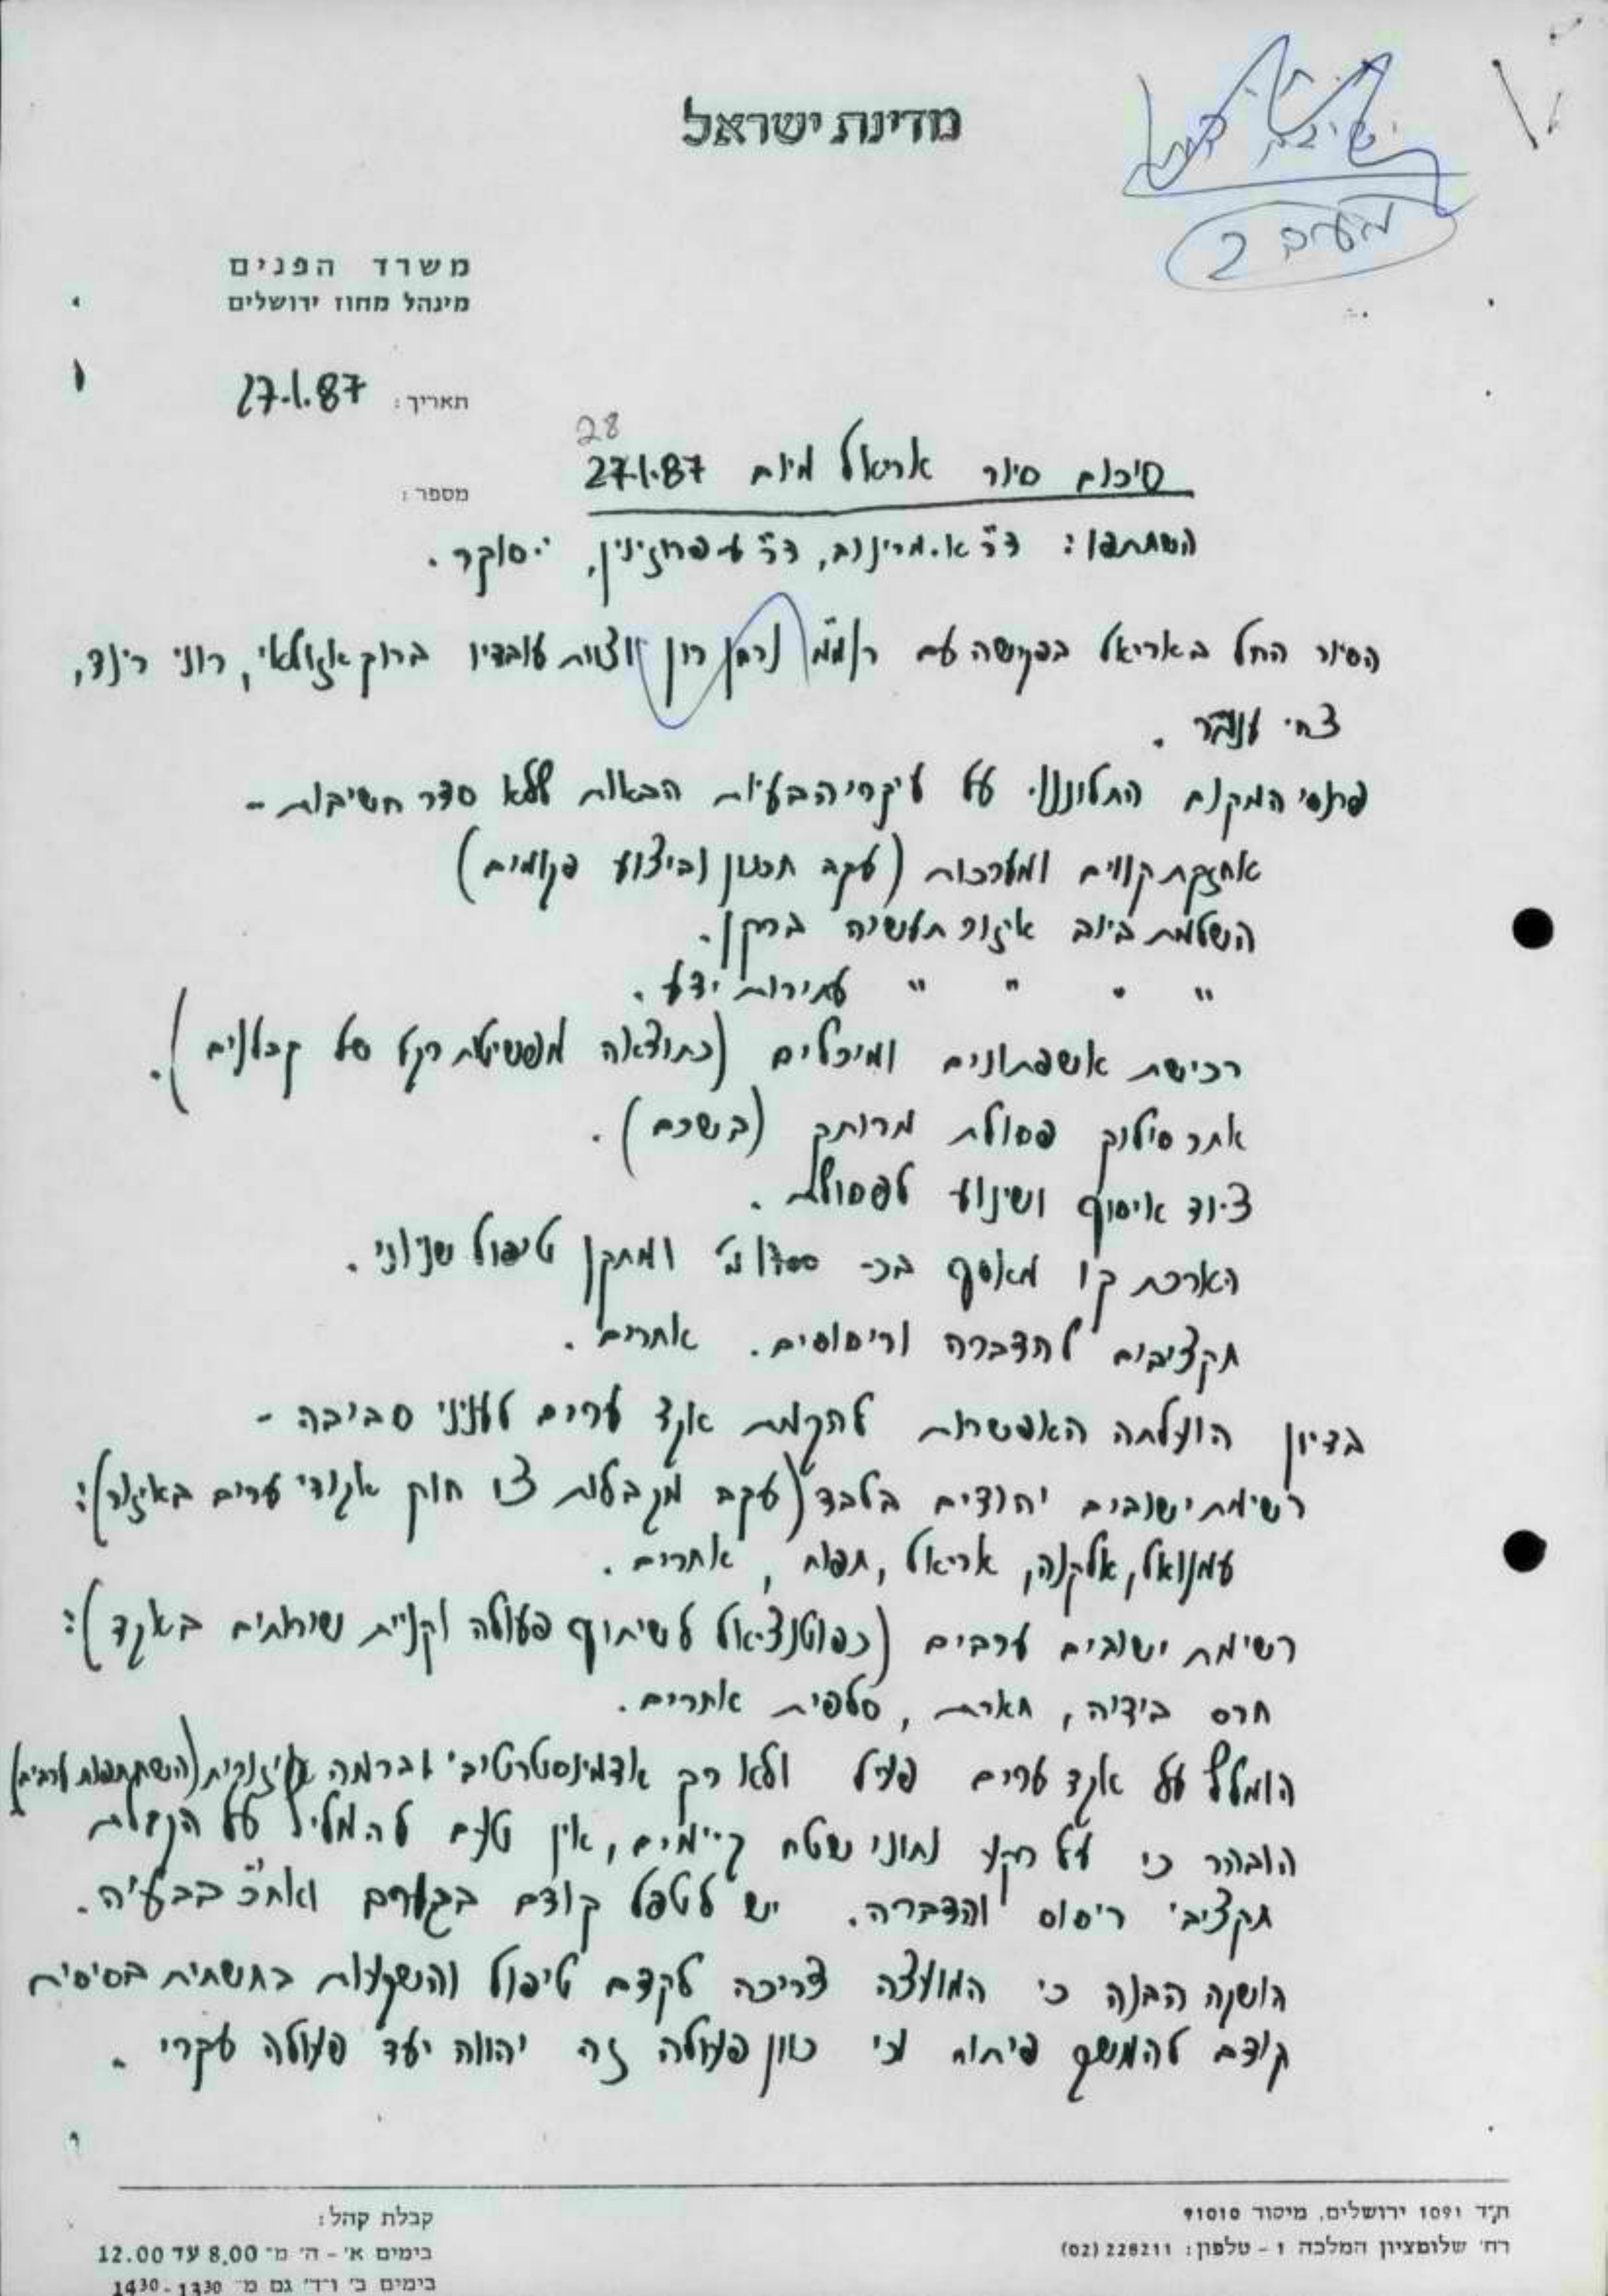 מדינת ישראל
משרד הפנים
מינהל מחוז ירושלים
תאריך: 27.1.87
מספר:
28
סיכום סיור אריאל מיום 27.1.87
השתתפו: ד"ר א. מרינוב, ד"ר ע. פרוזינין, י. סוקר.
הסיור החל באריאל בפגישה עם רומ"מ נחמן רון וצוות עובדיו ברוך אזולאי, רוני רינד,
צחי ענבר.
פרנסי המקום התלוננו על עיקרי הבעיות הבאות ללא סדר חשיבות -
אחזקת קווים ומערכות (עקב תכנון וביצוע פקומים)
השלמת ביוב איזור תעשיה ברקן.
" " " " עתירות ידע.
רכישת אשפתונים ומיכלים (כתוצאה מפשיטת רגל של קבלנים).
אתר סילוק פסולת מרוחק (בשכם).
ציוד איסוף ושינוע לפסולת.
הארכת קו מאסף בכ- מ' ומתקן טיפול שניוני.
תקציבים להדברה וריסוסים. אחרים.
בדיון הועלתה האפשרות להקמת אגד ערים לעניני סביבה -
רשימת ישובים יהודים בלבד (עקב מגבלות צו חוק אגודי ערים באיזור):
עמנואל, אלקנה, אריאל, תפוח, אחרים.
רשימת ישובים ערבים (כפוטנציאל לשיתוף פעולה וקניית שירותים באגד):
חרס בידיה, חארת, סלפית אחרים.
הומלץ על אגד ערים פעיל ולא רק אדמינסטרטיבי וברמה איזורית (השתתפות ערבים)
הובהר כי על רקע נתוני שטח קיימים, אין טעם להמליץ על הקצאת
תקציבי ריסוס והדברה. יש לטפל קודם בגורם ואח"כ בבעיה.
הושגה הבנה כי המועצה צריכה לקדם טיפול והשקעות בתשתית בסיסית
קודם להמשך פיתוח וכי כוון פעולה זה יהווה יעד פעולה עקרי.
ת"ד 1091 ירושלים, מיקוד 91010
רח' שלומציון המלכה 1 - טלפון: 228211 (02)
קבלת קהל:
בימים א'-ה' מ־8.00 עד 12.00
בימים ב' ו־ד' גם מ־1330-1430